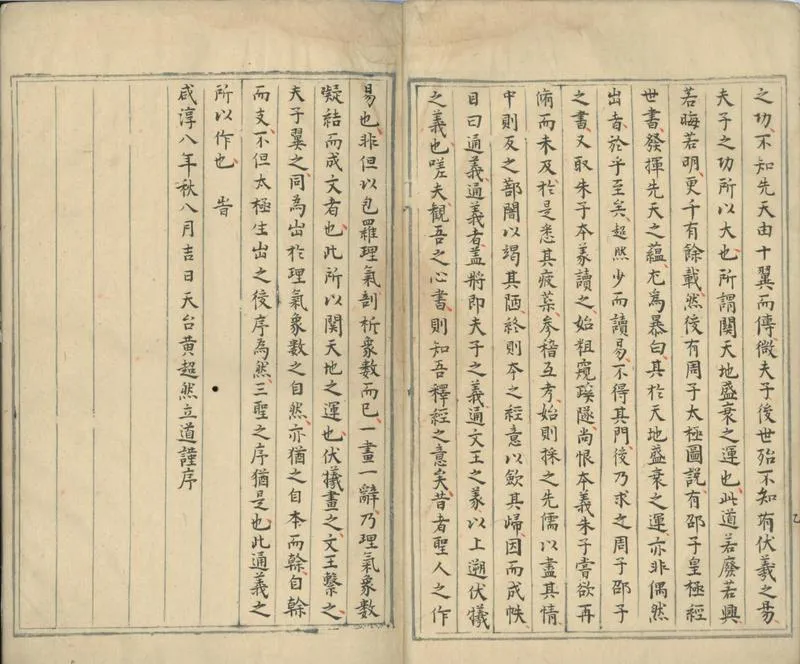 之功、不知先天由十翼而傳、微夫子後世殆不知有伏羲之易、
夫子之功所以大也、所謂關天地盛衰之運也、此道若廢若興
若晦若明、更千有餘載、然後有周子太極圖說、有邵子皇極經
世書、發揮先天之蘊、尤為暴白、其於天地盛衰之運、亦非偶然
出者、於乎至矣、超然少而讀易、不得其門、後乃求之周子邵子
之書、又取朱子本義讀之、始粗窺蹊隧、尚恨本義朱子嘗欲再
脩而未及、於是悉其疲薾、參稽互考、始則採之先儒以盡其情、
中則反之蔀闇以竭其陋、終則本之經意以飲其歸、因而成帙、
目曰通義、通義者、盖將即夫子之義、通文王之彖、以上遡伏犧
之義也、嗟夫、觀吾之心書、則知吾釋經之意矣、昔者聖人之作
易也、非但以包羅理氣剖析象數而已、一畫一辭、乃理氣象數
凝結而成文者也、此所以関天地之運也、伏犧畫之、文王繫之、
夫子翼之、同為出於理氣象數之自然、亦猶之自本而榦、自榦
而支、不但太極生出之後序為然、三聖之序猶是也、此通義之
所以作也、旹
咸淳八年秋八月吉日天台黄超然立道謹序